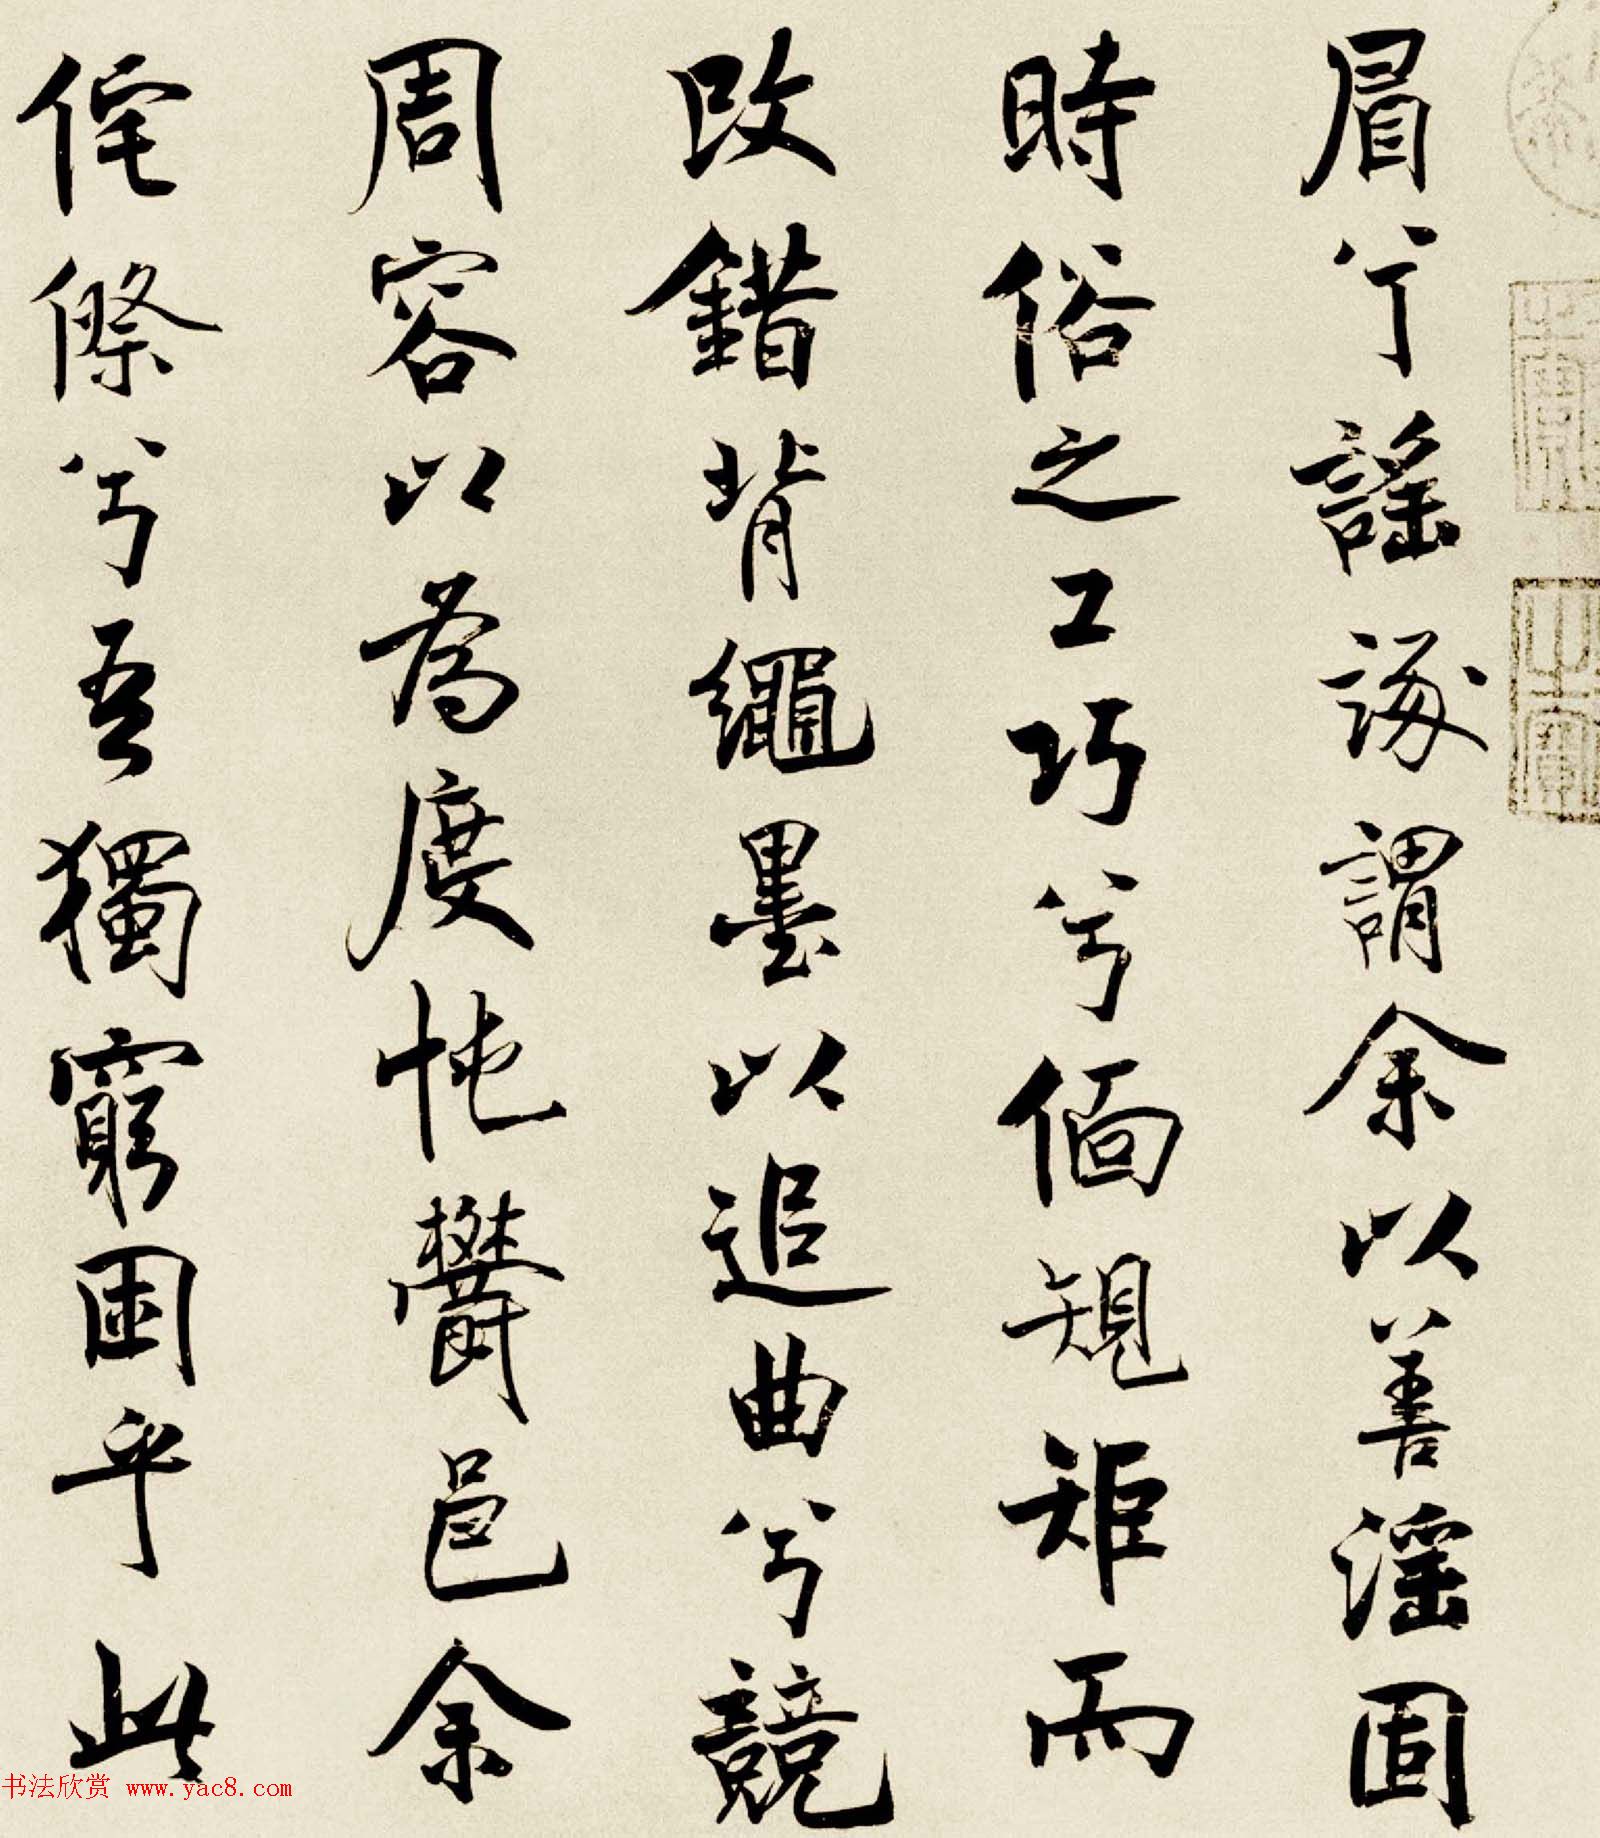 眉兮謡諑謂余以善淫固
時俗之工巧兮偭規矩而
改錯背繩墨以追曲兮競
周容以為度忳鬱邑余
侘傺兮吾獨窮困乎此
书法欣赏 www.yac8.com